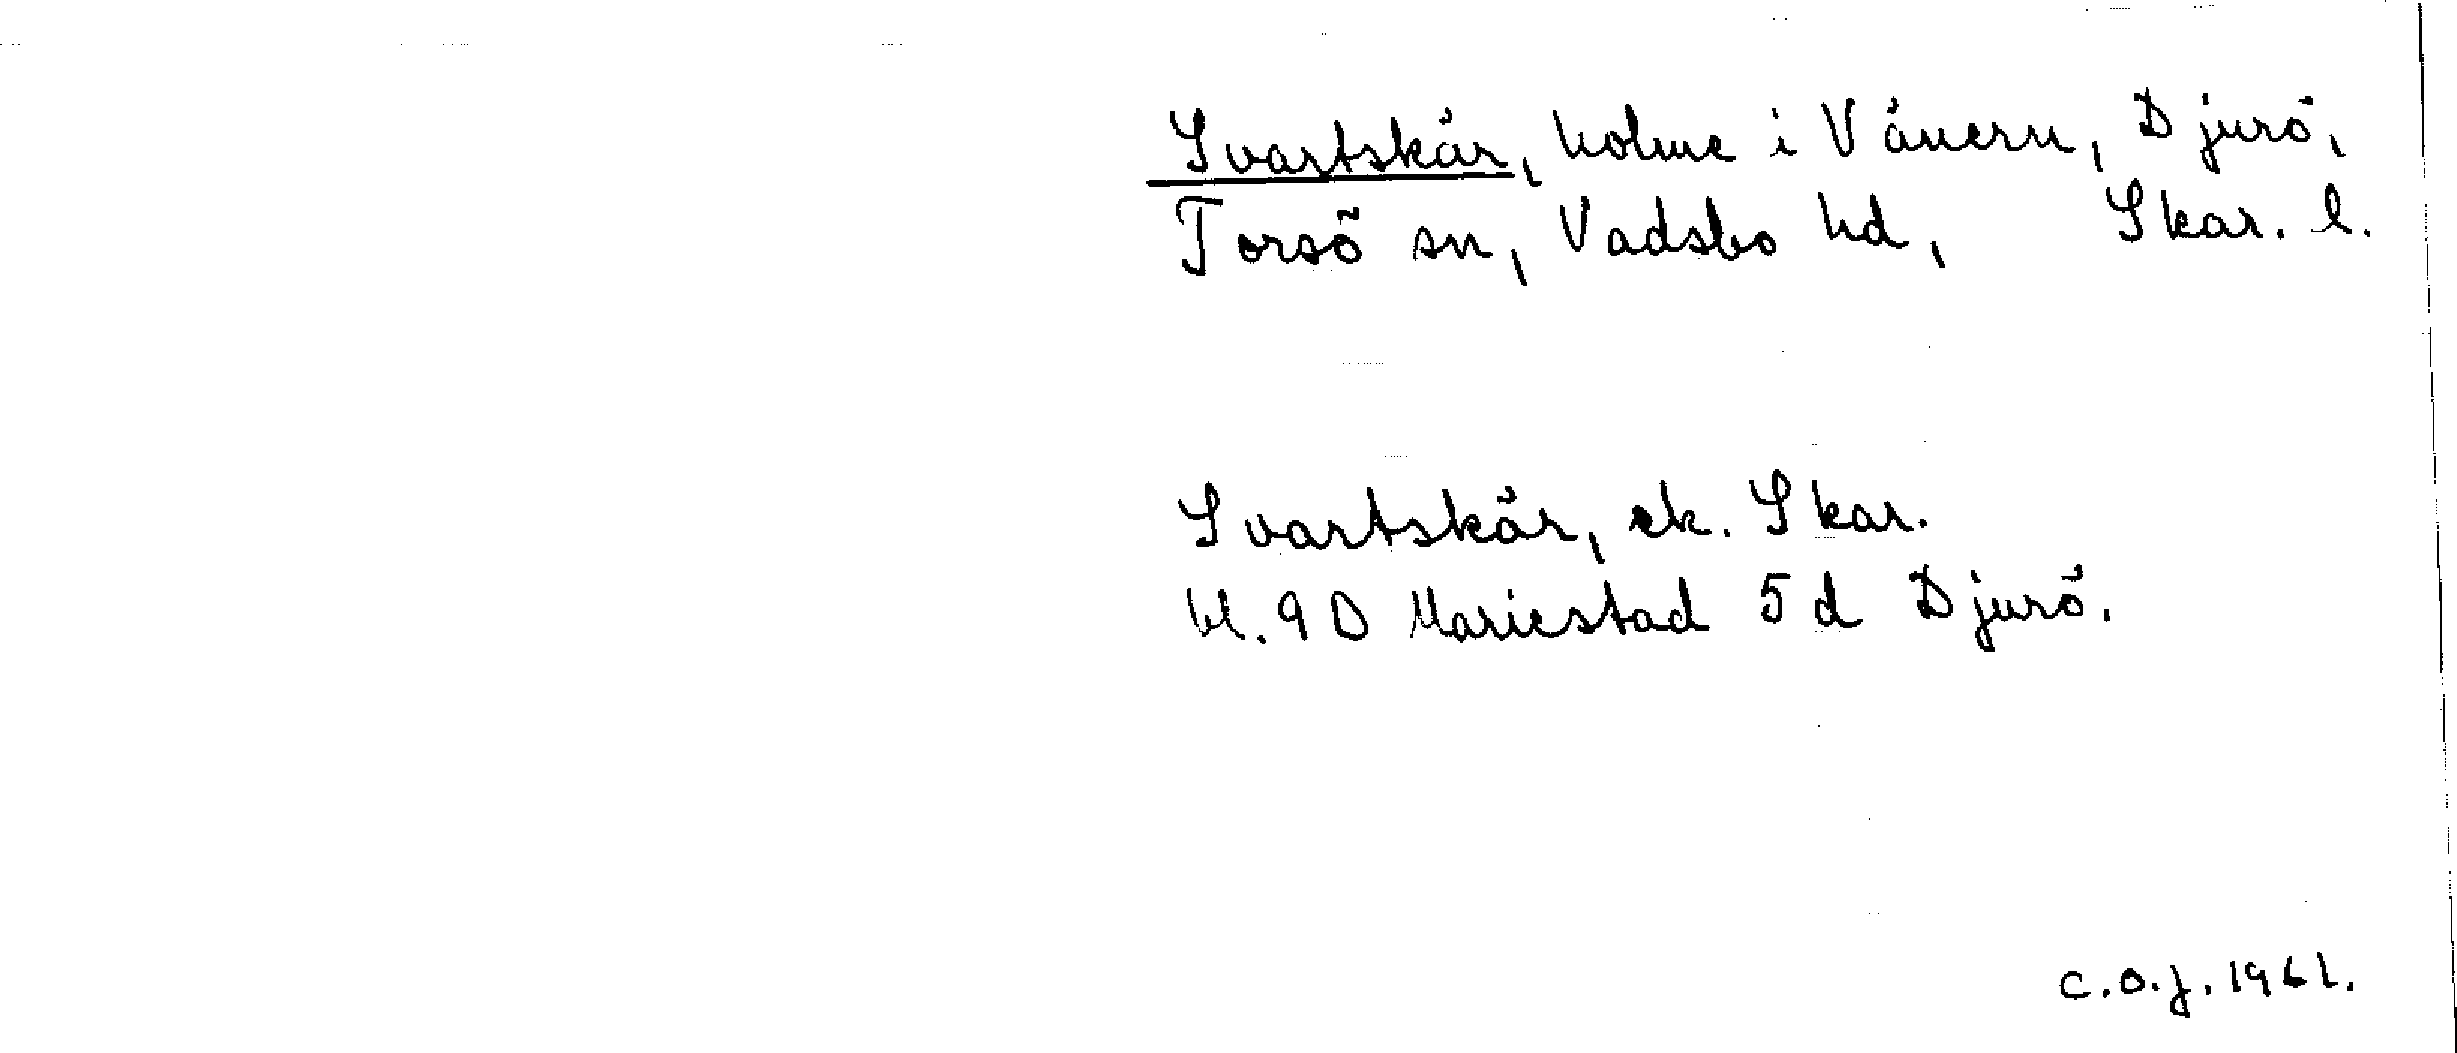 Svartskär, holme i Vänern, Djurö,
Torsö sn, Vadsbo hd, Skar. l.
Svartskär, ek. Skar.
bl. 9D Mariestad 5d Djurö.
C.O.J. 1961.